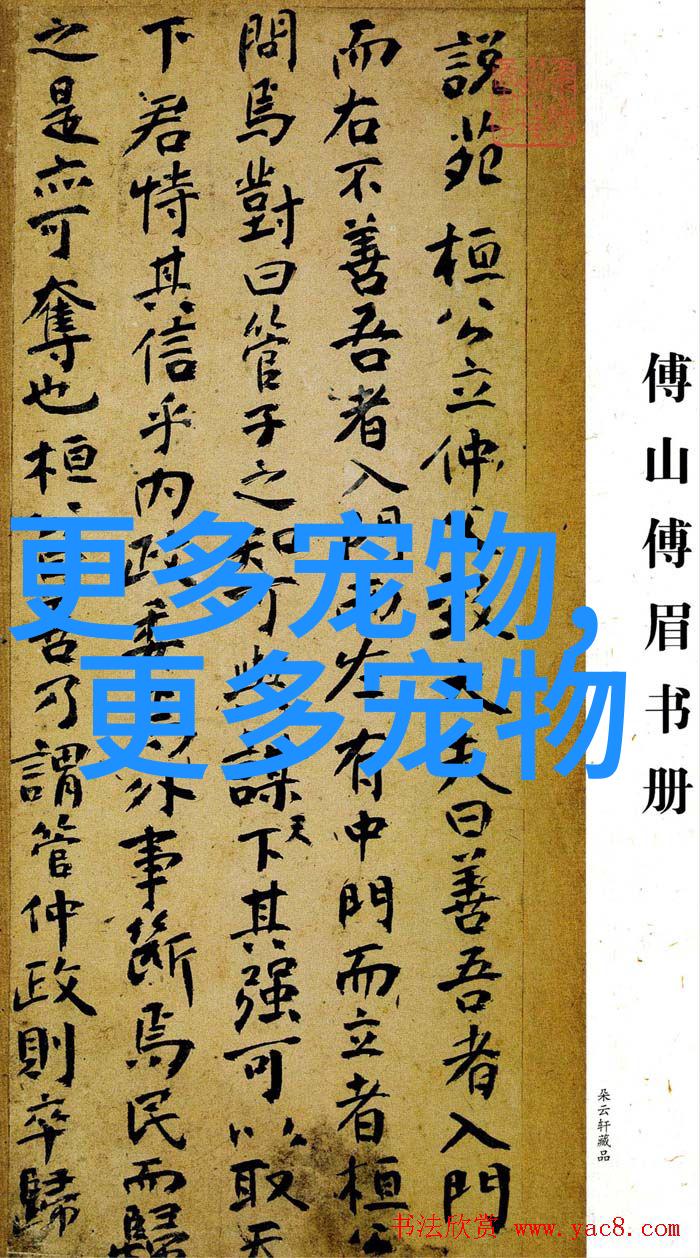 说苑 桓公立仲父致大夫曰善吾者入門
而右不善吾者入門而左有中門而立者桓公
問焉對曰管子之知可與謀天下其强可以取天
下君恃其信乎内政委焉外事斷焉民而歸
之是亦可奪也桓公曰善乃謂管仲政則卒歸
傅山傅眉书册
朵云轩藏品
更多宠物,
更多宠物
书法欣赏 www.yac8.com